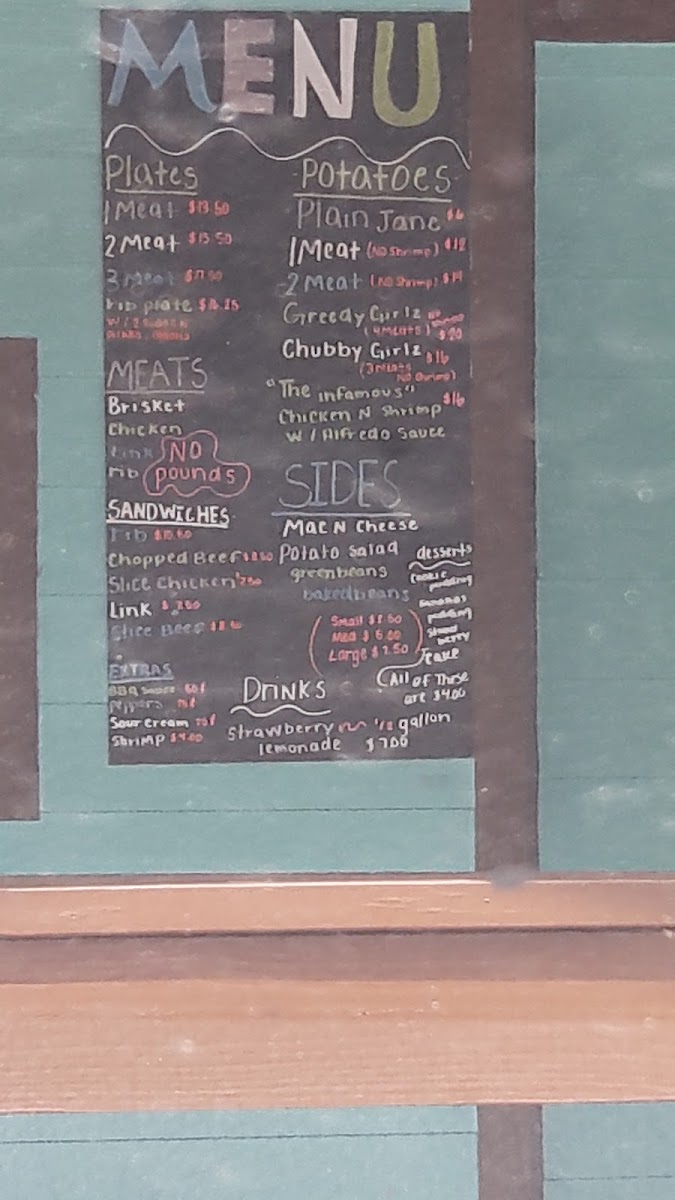 MENU
Plates
1 Meat $13.50
2 Meat $15.50
3 Meat $17.50
rib plate
MEATS
Brisket
Chicken
Link NO
rib pounds
SANDWICHES
rib
Chopped Beef
Slice Chicken
Link
Slice Beef
EXTRAS
BBQ Sauce
Peppers
Sour Cream
Shrimp $4.00
Potatoes
Plain Jane $6
1 Meat (NO Shrimp) $12
2 Meat (NO Shrimp) $14
Greedy Girlz
(4 Meats) $20
Chubby Girlz $16
(3 Meats
NO Shrimp)
"The infamous"
Chicken N Shrimp $16
W/ Alfredo Sauce
SIDES
Mac N Cheese
Potato Salad
greenbeans
bakedbeans
Small
Med $6.00
Large $7.50
desserts
Cookie
pudding
Bananas
pudding
Straw
berry
Cake
(All of These
are $4.00
Drinks
Strawberry 1/2 gallon
lemonade $7.00